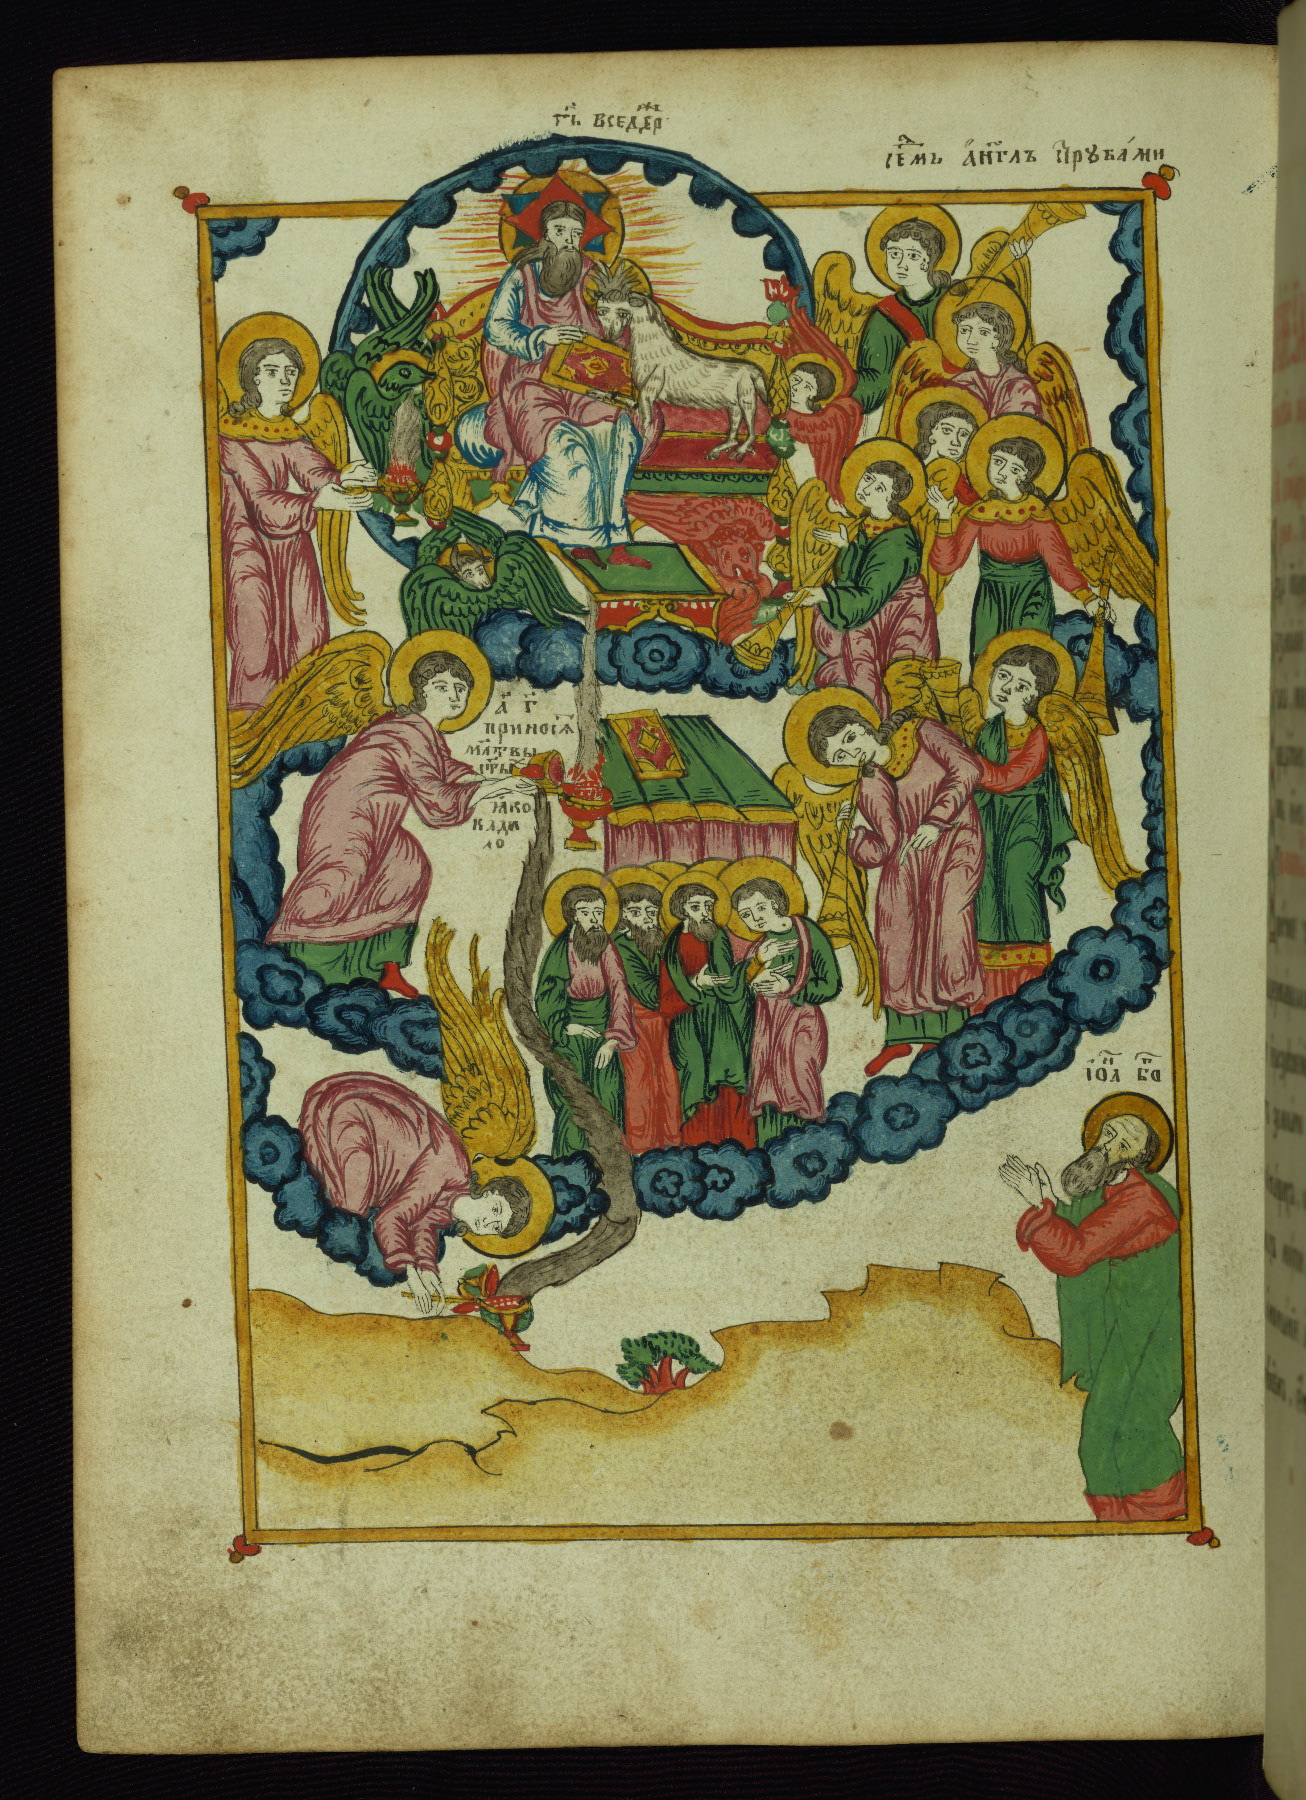 Гь҃ вседер҃
се́мь а҆нг҃лъ с̾трꙋба́ми
а҃г҃
приносѧ҃
мл҃твы
ст҃ыⷯ
ꙗко
кади
ло
іѡаⷩ҇ бг҃о